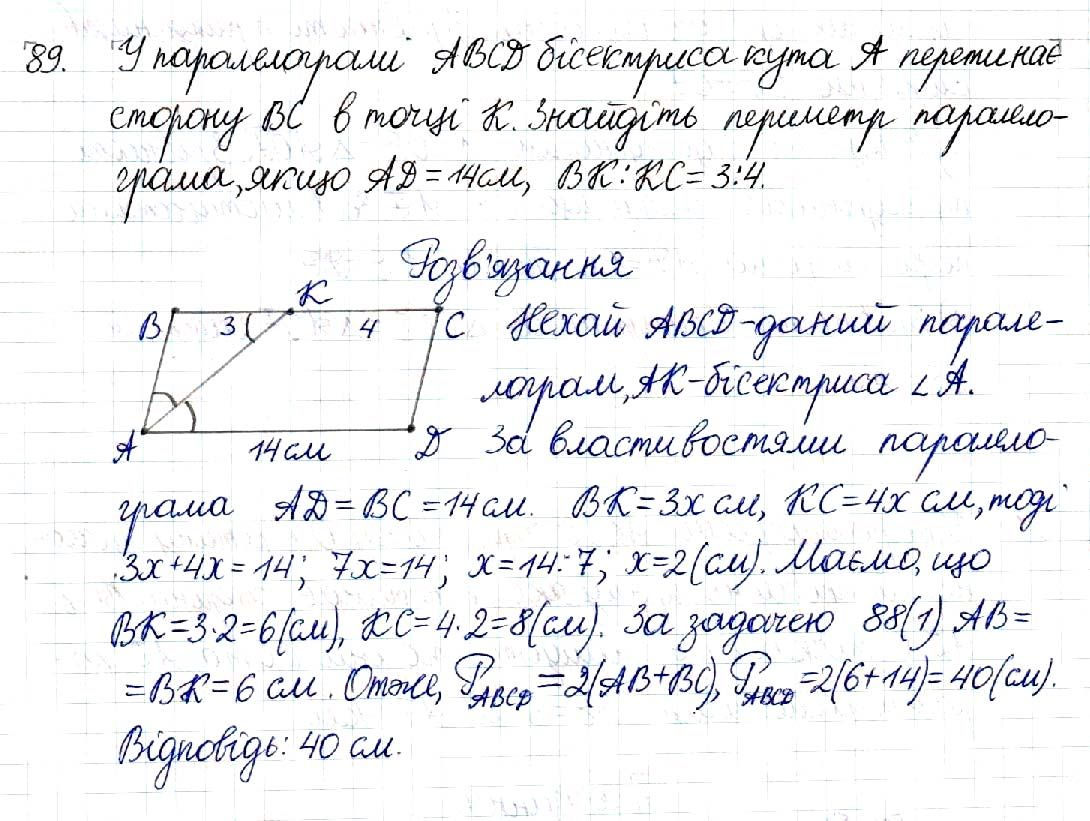 89. У паралелограмі ABCD бісектриса кута A перетинає
сторону BC в точці K. Знайдіть периметр парале­ло-
грама, якщо AD = 14 см, BK : KC = 3:4.
Розв'язання
K
B 3 4 C
A 14 см D
Нехай ABCD - даний парале-
лограм, AK - бісектриса ∠A.
За властивостями паралело-
грама AD = BC = 14 см. BK = 3x см, KC = 4x см, тоді
3x + 4x = 14; 7x = 14; x = 14 : 7; x = 2 (см). Маємо, що
BK = 3 · 2 = 6 (см), KC = 4 · 2 = 8 (см). За задачею 88(1) AB =
= BK = 6 см. Отже, P_ABCD = 2(AB + BC), P_ABCD = 2(6 + 14) = 40 (см).
Відповідь: 40 см.